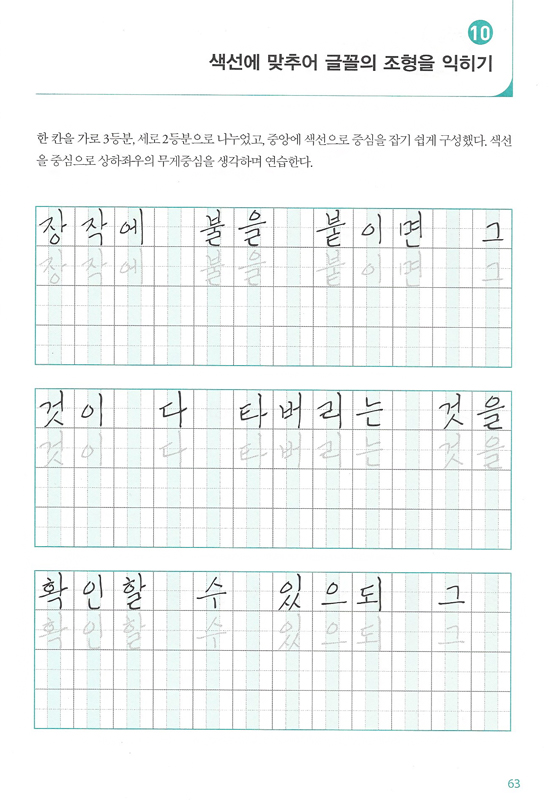 10
색선에 맞추어 글꼴의 조형을 익히기
한 칸을 가로 3등분, 세로 2등분으로 나누었고, 중앙에 색선으로 중심을 잡기 쉽게 구성했다. 색선
을 중심으로 상하좌우의 무게중심을 생각하며 연습한다.
장작에 불을 붙이면 그
장작에 불을 붙이면 그
것이 다 타버리는 것을
것이 다 타버리는 것을
확인할 수 있으되 그
확인할 수 있으되 그
63